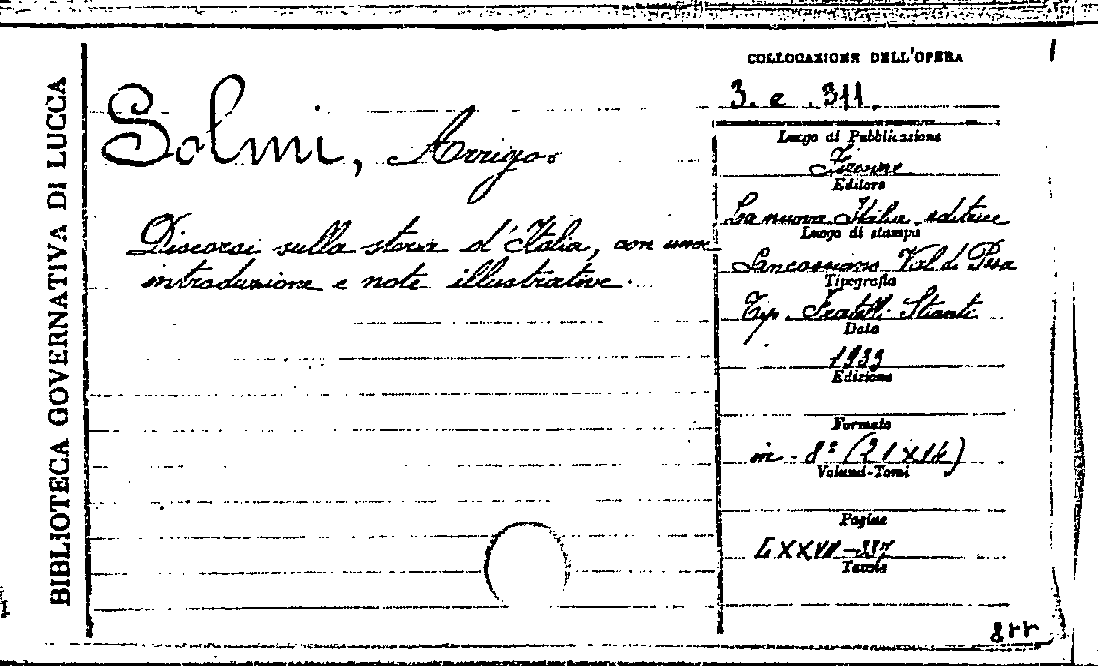 BIBLIOTECA GOVERNATIVA DI LUCCA
Solmi, Arrigo.
Discorsi sulla storia d'Italia, con una
introduzione e note illustrative.
COLLOCAZIONE DELL'OPERA
3. e. 311.
Luogo di Pubblicazione
Firenze
Editore
La nuova Italia editrice
Luogo di stampa
Sancasciano Val di Pesa
Tipografia
Tip. Fratelli Stianti
Data
1933
Edizione
Formato
in - 8° (21x14)
Volumi-Tomi
Pagine
LXXVII-337
Tavole